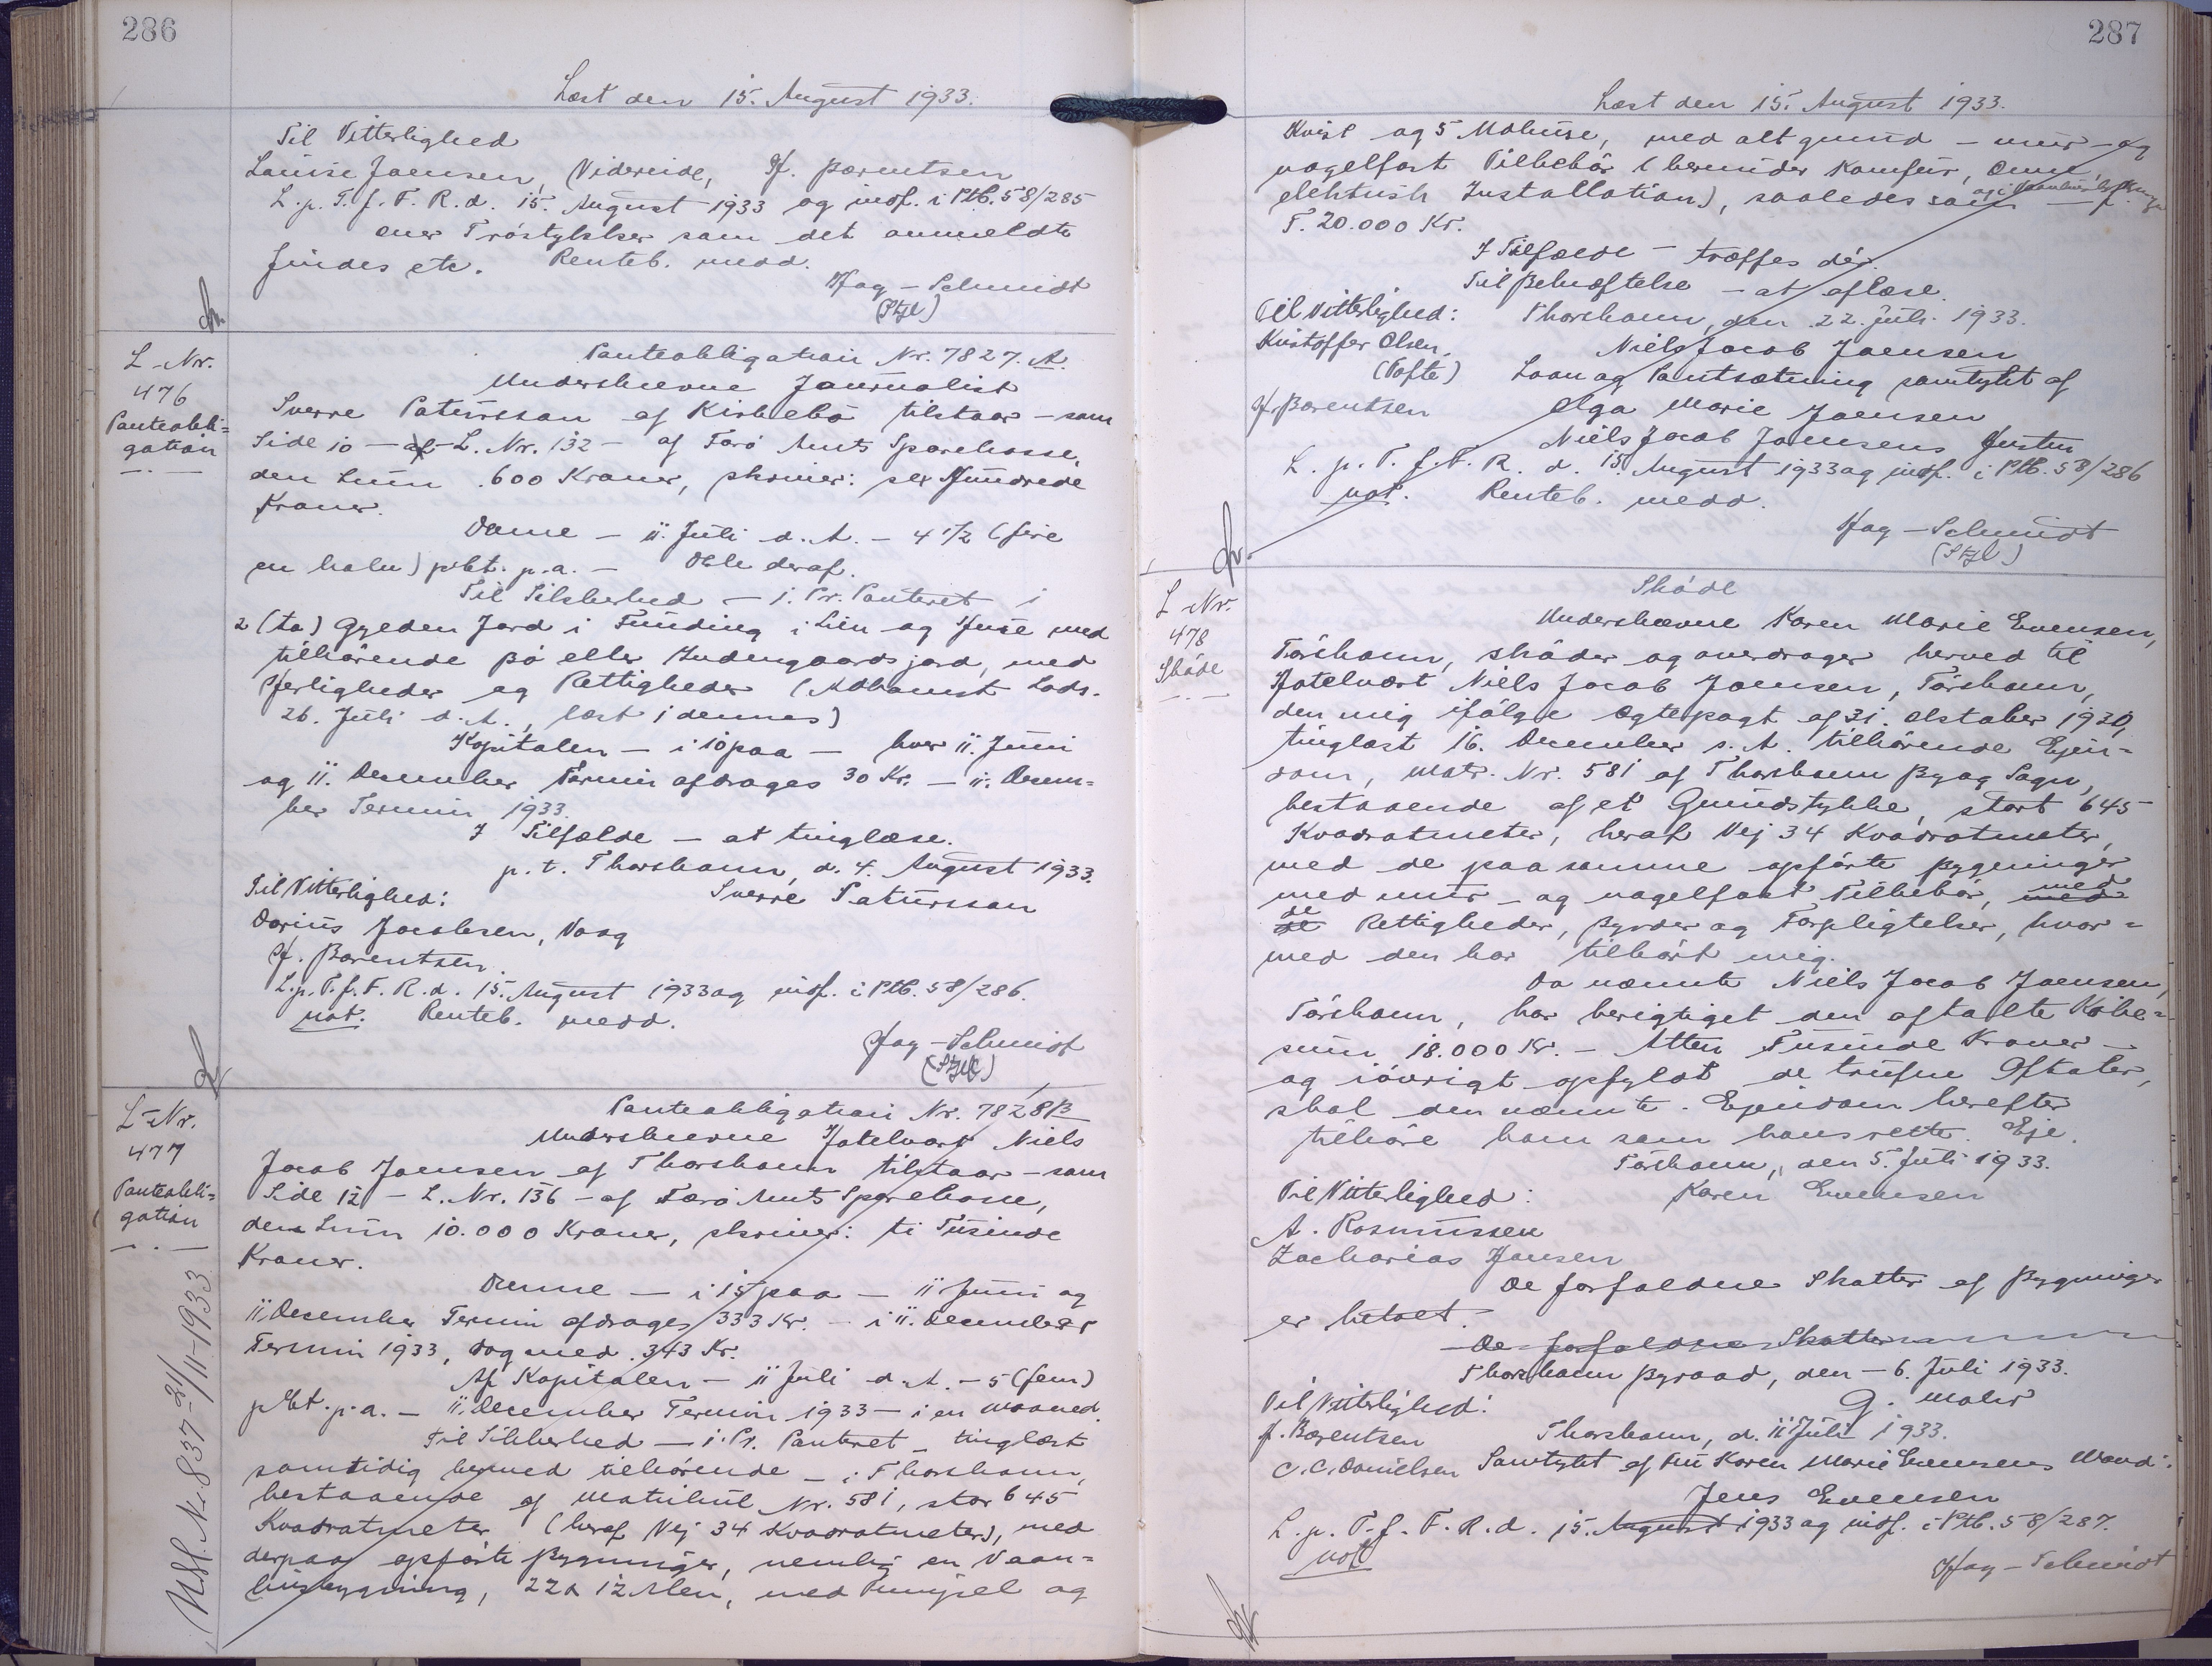 286
Læst den 15. August 1933.
Til Vitterlighed
Louise Joensen, Videreide, H. Barentsen
L. p. T. f. F. R. d. 15. August 1933 og indf. i Ptb. 58/285
som det anmeldte
findes etc. Renteb. medd.
Hag-Schmidt
L-Nr.
476
Panteobli=
gation
Panteobligation Nr. 7827. A.
Underskrevne Journalist
Sverre Patursson af Kirkebø tilstaar - som
Side 10 - L. Nr. 132 - af Færø Amts Sparekasse,
den Sum 600 Kroner, skriver: sex Hundrede
Kroner.
Denne - 11. Juli d. A. - 4 1/2 (fire
en halv) pCt. p.a. - Dele deraf.
Til Sikkerhed - 1. Pr. Panteret i
2 (to) Gylden Jord i Funding i Lien og Huse med
tilhørende Bø eller Indengaardsjord, med
Herligheder og Rettigheder (Adkomst Lods.
26. Juli d. A., læst i dennes)
Kapitalen - i 10 paa - hver 11. Juni
og 11. December Termin afdrages 30 Kr. - 11. Decem=
ber Termin 1933.
I Tilfælde - at tinglæse.
p. t. Thorshavn, d. 4. August 1933.
Til Vitterlighed: Sverre Patursson
Darius Jacobsen, Vaag
H. Barentsen
L. p. T. f. F. R. d. 15. August 1933 og indf. i Ptb. 58/286.
not. Renteb. medd.
Hag-Schmidt
L-Nr.
477
Panteobli=
gation
Nr. 837-21/11-1933
Panteobligation Nr. 7828 B
Underskrevne Hotelvært Niels
Jacob Joensen af Thorshavn tilstaar - som
Side 12 - L. Nr. 136 - af Færø Amts Sparekasse,
den Sum 10.000 Kroner, skriver: ti Tusinde
Kroner.
Denne - i 15 paa - 11 Juni og
11. December Termin afdrages 333 Kr. - i 11. December
Termin 1933, dog med 343 Kr.
Af Kapitalen - 11 Juli d. A. - 5 (fem)
pCt. p.a. - 11. December Termin 1933 - i en Maaned.
Til Sikkerhed - 1. Pr. Panteret - tinglæst
samtidig hermed tilhørende - i Thorshavn,
bestaaende af Matrikul Nr. 581, stor 645
Kvadratmeter (heraf Vej 34 Kvadratmeter), med
derpaa opførte Bygninger, nemlig en Vaan=
husbygning, 22 x 12 Alen, med og
287
Læst den 15. August 1933.
Kvist og 5 Udhuse, med alt grund - mur - og
nagelfast Tilbehør (herunder Komfur, Ovne,
elektrisk Installation), saaledes som
F. 20.000 Kr.
I Tilfælde - træffes dér.
Til Bekræftelse - at aflæse.
Til Vitterlighed: Thorshavn, den 22. Juli 1933.
Kristoffer Olsen, Niels Jacob Joensen
(Tofte) Laan og Pantsætning samtykt af
H. Barentsen Olga Marie Joensen
Niels Jacob Joensens Hustru
L. p. T. f. F. R. d. 15 August 1933 og indf. i Ptb. 58/286
not. Renteb. medd.
Hag-Schmidt
L-Nr.
478
Skøde
Skøde
Underskrevne Karen Marie Evensen,
Tórshavn, skøder og overdrager herved til
Hotelvært Niels Jacob Joensen, Tórshavn,
den mig ifølge Ægtepagt af 31. Oktober 1930,
tinglæst 16. December s. A. tilhørende Ejen=
dom, Matr. Nr. 581 af Thorshavn By og Sogn,
bestaaende af et Grundstykke, stort 645
Kvadratmeter, heraf Vej 34 Kvadratmeter,
med de paa samme opførte Bygninger
med mur- og nagelfast Tilbehør, med
de Rettigheder, Byrder og Forpligtelser, hvor=
med den har tilhørt mig.
Da nævnte Niels Jacob Joensen,
Tórshavn, har berigtiget den aftalte Købe=
sum 18.000 Kr. - Atten Tusinde Kroner -
og iøvrigt opfyldt de trufne Aftaler,
skal den nævnte Ejendom herefter
tilhøre ham som hans rette Eje.
Tórshavn, den 5. Juli 1933.
Til Vitterlighed: Karen Evensen
A. Rasmussen
Zacharias Hansen
De forfaldne Skatter af Bygninger
er betalt.
De forfaldne Skatter
Thorshavn Byraad, den - 6. Juli 1933.
Til Vitterlighed: G. Mohr
J. Barentsen Thorshavn, d. 11 Juli 1933.
C. C. Danielsen Samtykt af Fru Karen Marie Evensens Mand:
Jens Evensen
L. p. T. f. F. R. d. 15. August 1933 og indf. i Ptb. 58/287.
not
Hag-Schmidt